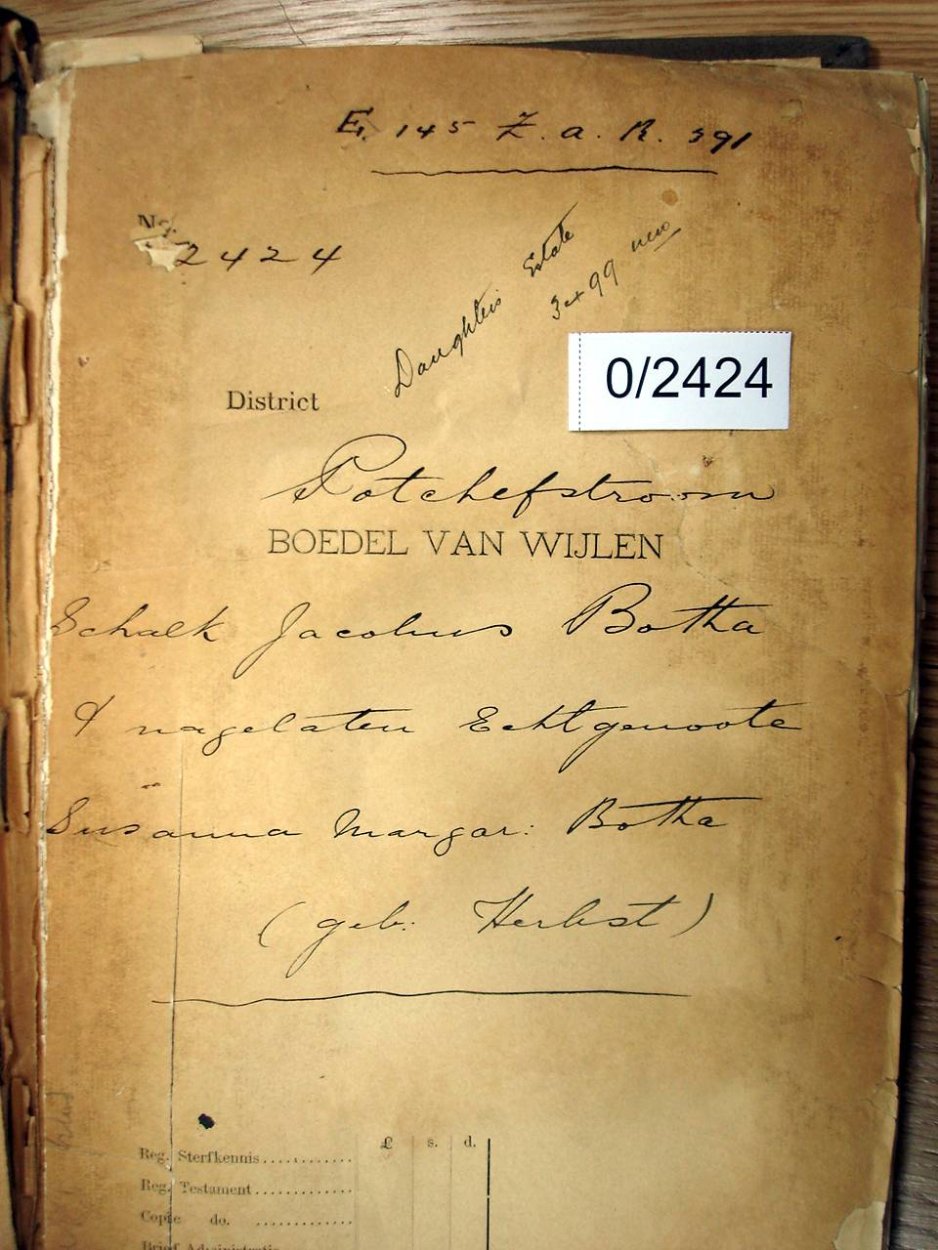 E. 145 Z.a.R. 391
No.
2424
Daughters Estate
99 new
0/2424
District
Potchefstroom
BOEDEL VAN WIJLEN
Schalk Jacobus Botha
& nagelaten Echtgenoote
Susanna Margar: Botha
(geb: Herbst)
£ s. d.
Reg. Sterfkennis..............
Reg. Testament..............
Copie do. ..............
Brief Administratie